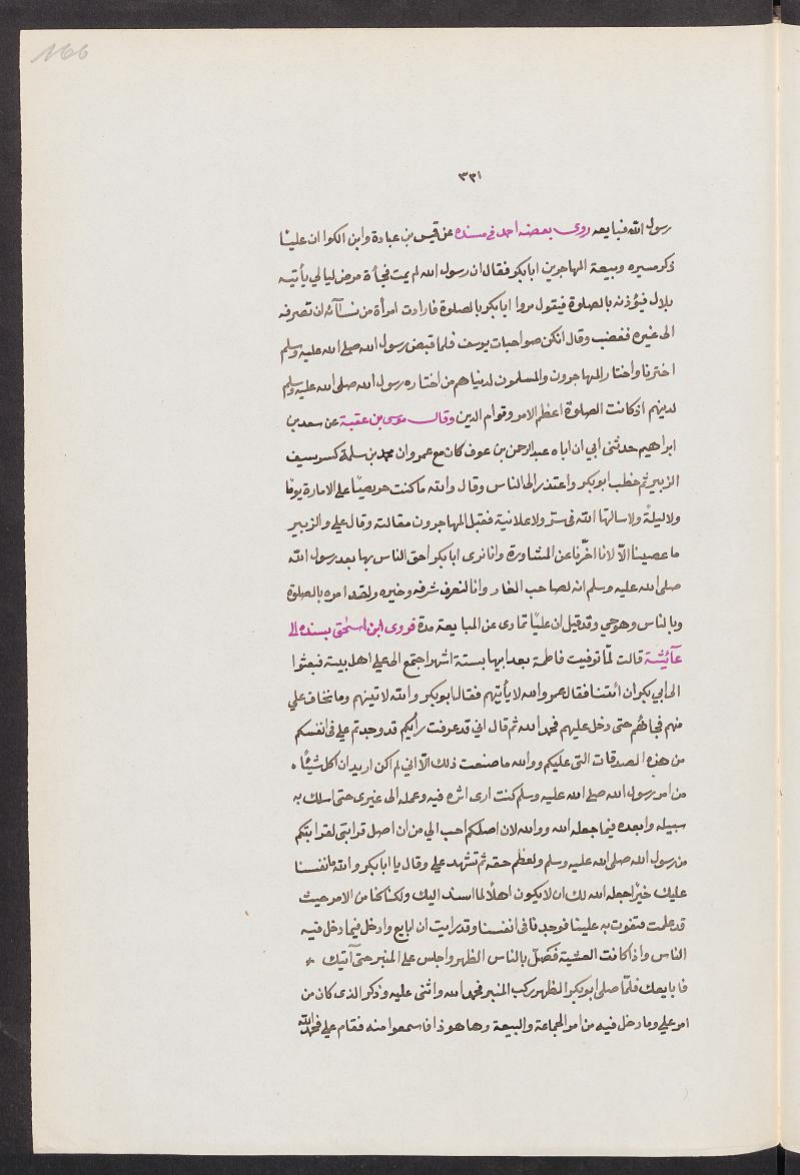 166
٣٣١
رسول الله فبايعه روى بعضه احمد فى مسنده عن قيس بن عبادة وابن الكوا ان عليًا
ذكر مسيره وبيعة المهاجرين ابابكر فقال ان رسول الله لم يمت فجأة مرض ليالي يأتيه
بلال فيؤذنه بالصلوة فيقول مروا ابابكر بالصلوة فارادت امرأة من نسآئه ان تصرفه
الى غيره فغضب وقال انكن صواحبات يوسف فلما قبض رسول الله صلى الله عليه وسلم
اخترنا واختار المهاجرون والمسلمون لدنياهم من اختاره رسول الله صلى الله عليه وسلم
لدينهم اذ كانت الصلوة اعظم الامر وقوام الدين وقال موسى بن عقبة عن سعد بن
ابراهيم حدثنى ابي ان اباه عبدالرحمن بن عوف كان مع عمر وان محمد بن سلمة كسر سيف
الزبير ثم خطب ابوبكر واعتذر الى الناس وقال والله ما كنت حريصًا على الامارة يومًا
ولا ليلةً ولا سالتها الله فى سرّ ولا علانية فقبل المهاجرون مقالته وقال علي والزبير
ما عصينا الّا لانا اخّرنا عن المشاورة وانا نرى ابابكر احق الناس بها بعد رسول الله
صلى الله عليه وسلم انه لصاحب الغار وانا لنعرف شرفه وخيره ولقد امره بالصلوة
وبالناس وهو حي وقد قيل ان عليًا تمادى عن المبايعة مدة فروى ابن اسحٰق بسنده الى
عآئشة قالت لمّا توفيت فاطمة بعد ابيها بستة اشهر اجتمع الى علي اهل بيته فبعثوا
الى ابي بكر ان ائتنا فقال عمر والله لا يأتيهم فقال ابوبكر والله لاتينهم وما نخاف علي
منهم فجاهم حتى دخل عليهم فحمد الله ثم قال اني قد عرفت رأيكم قد وجدتم علي فى انفسكم
من هذه الصدقات التى عليكم ووالله ما صنعت ذلك الّا اني لم اكن اريد ان اكل شيئًا
من امر رسول الله صلى الله عليه وسلم كنت ارى اثره فيه وعمله الى غيرى حتى اسلك به
سبيله وابعده فيما جعله الله ووالله لان اصلكم احب الي من ان اصل قرابتى لقرابتكم
من رسول الله صلى الله عليه وسلم ولعظم حقه ثم تشهد علي وقال يا ابابكر والله ما نفسنا
عليك خيرًا جعله الله لك ان لا يكون اهلًا لما اسند اليك ولكنا كنا من الامر حيث
قد علمت فتفوت به علينا فوجدنا فى انفسنا وقد رايت ان ابايع وادخل فيما دخل فيه
الناس واذا كانت العشية فصلّ بالناس الظهر واجلس على المنبر حتى آتيك *
فابايعك فلمّا صلى ابوبكر الظهر ركب المنبر فحمد الله واثنى عليه وذكر الذى كان من
امر علي وما دخل فيه من امر الجماعة والبيعة وها هو ذا فاسمعوا منه فقام علي فحمد الله